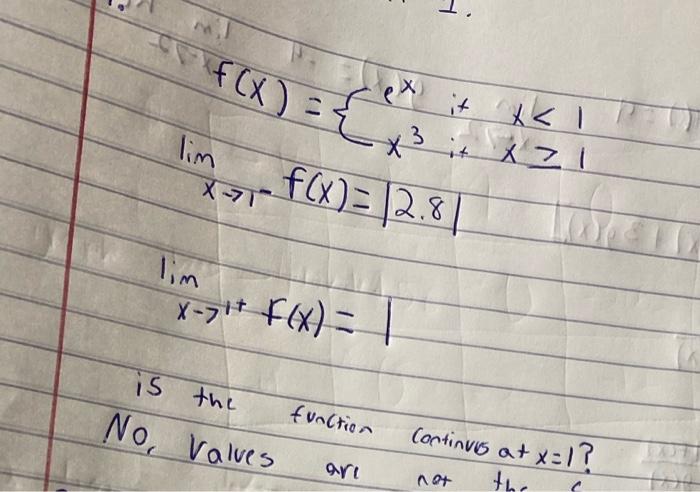 1.
f(x) = { e^x if x < 1
x^3 if x ≥ 1
lim x→1^- f(x) = |2.8|
lim x→1^+ f(x) = 1
is the function continues at x=1?
No, values are not the